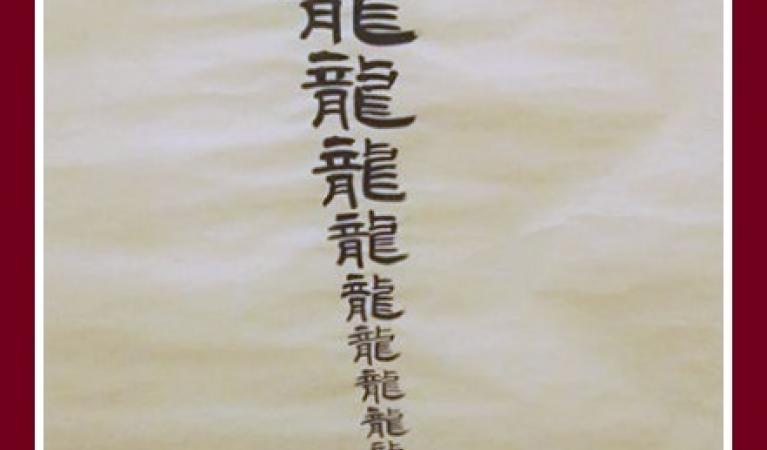 龍龍龍龍龍龍龍龍龍